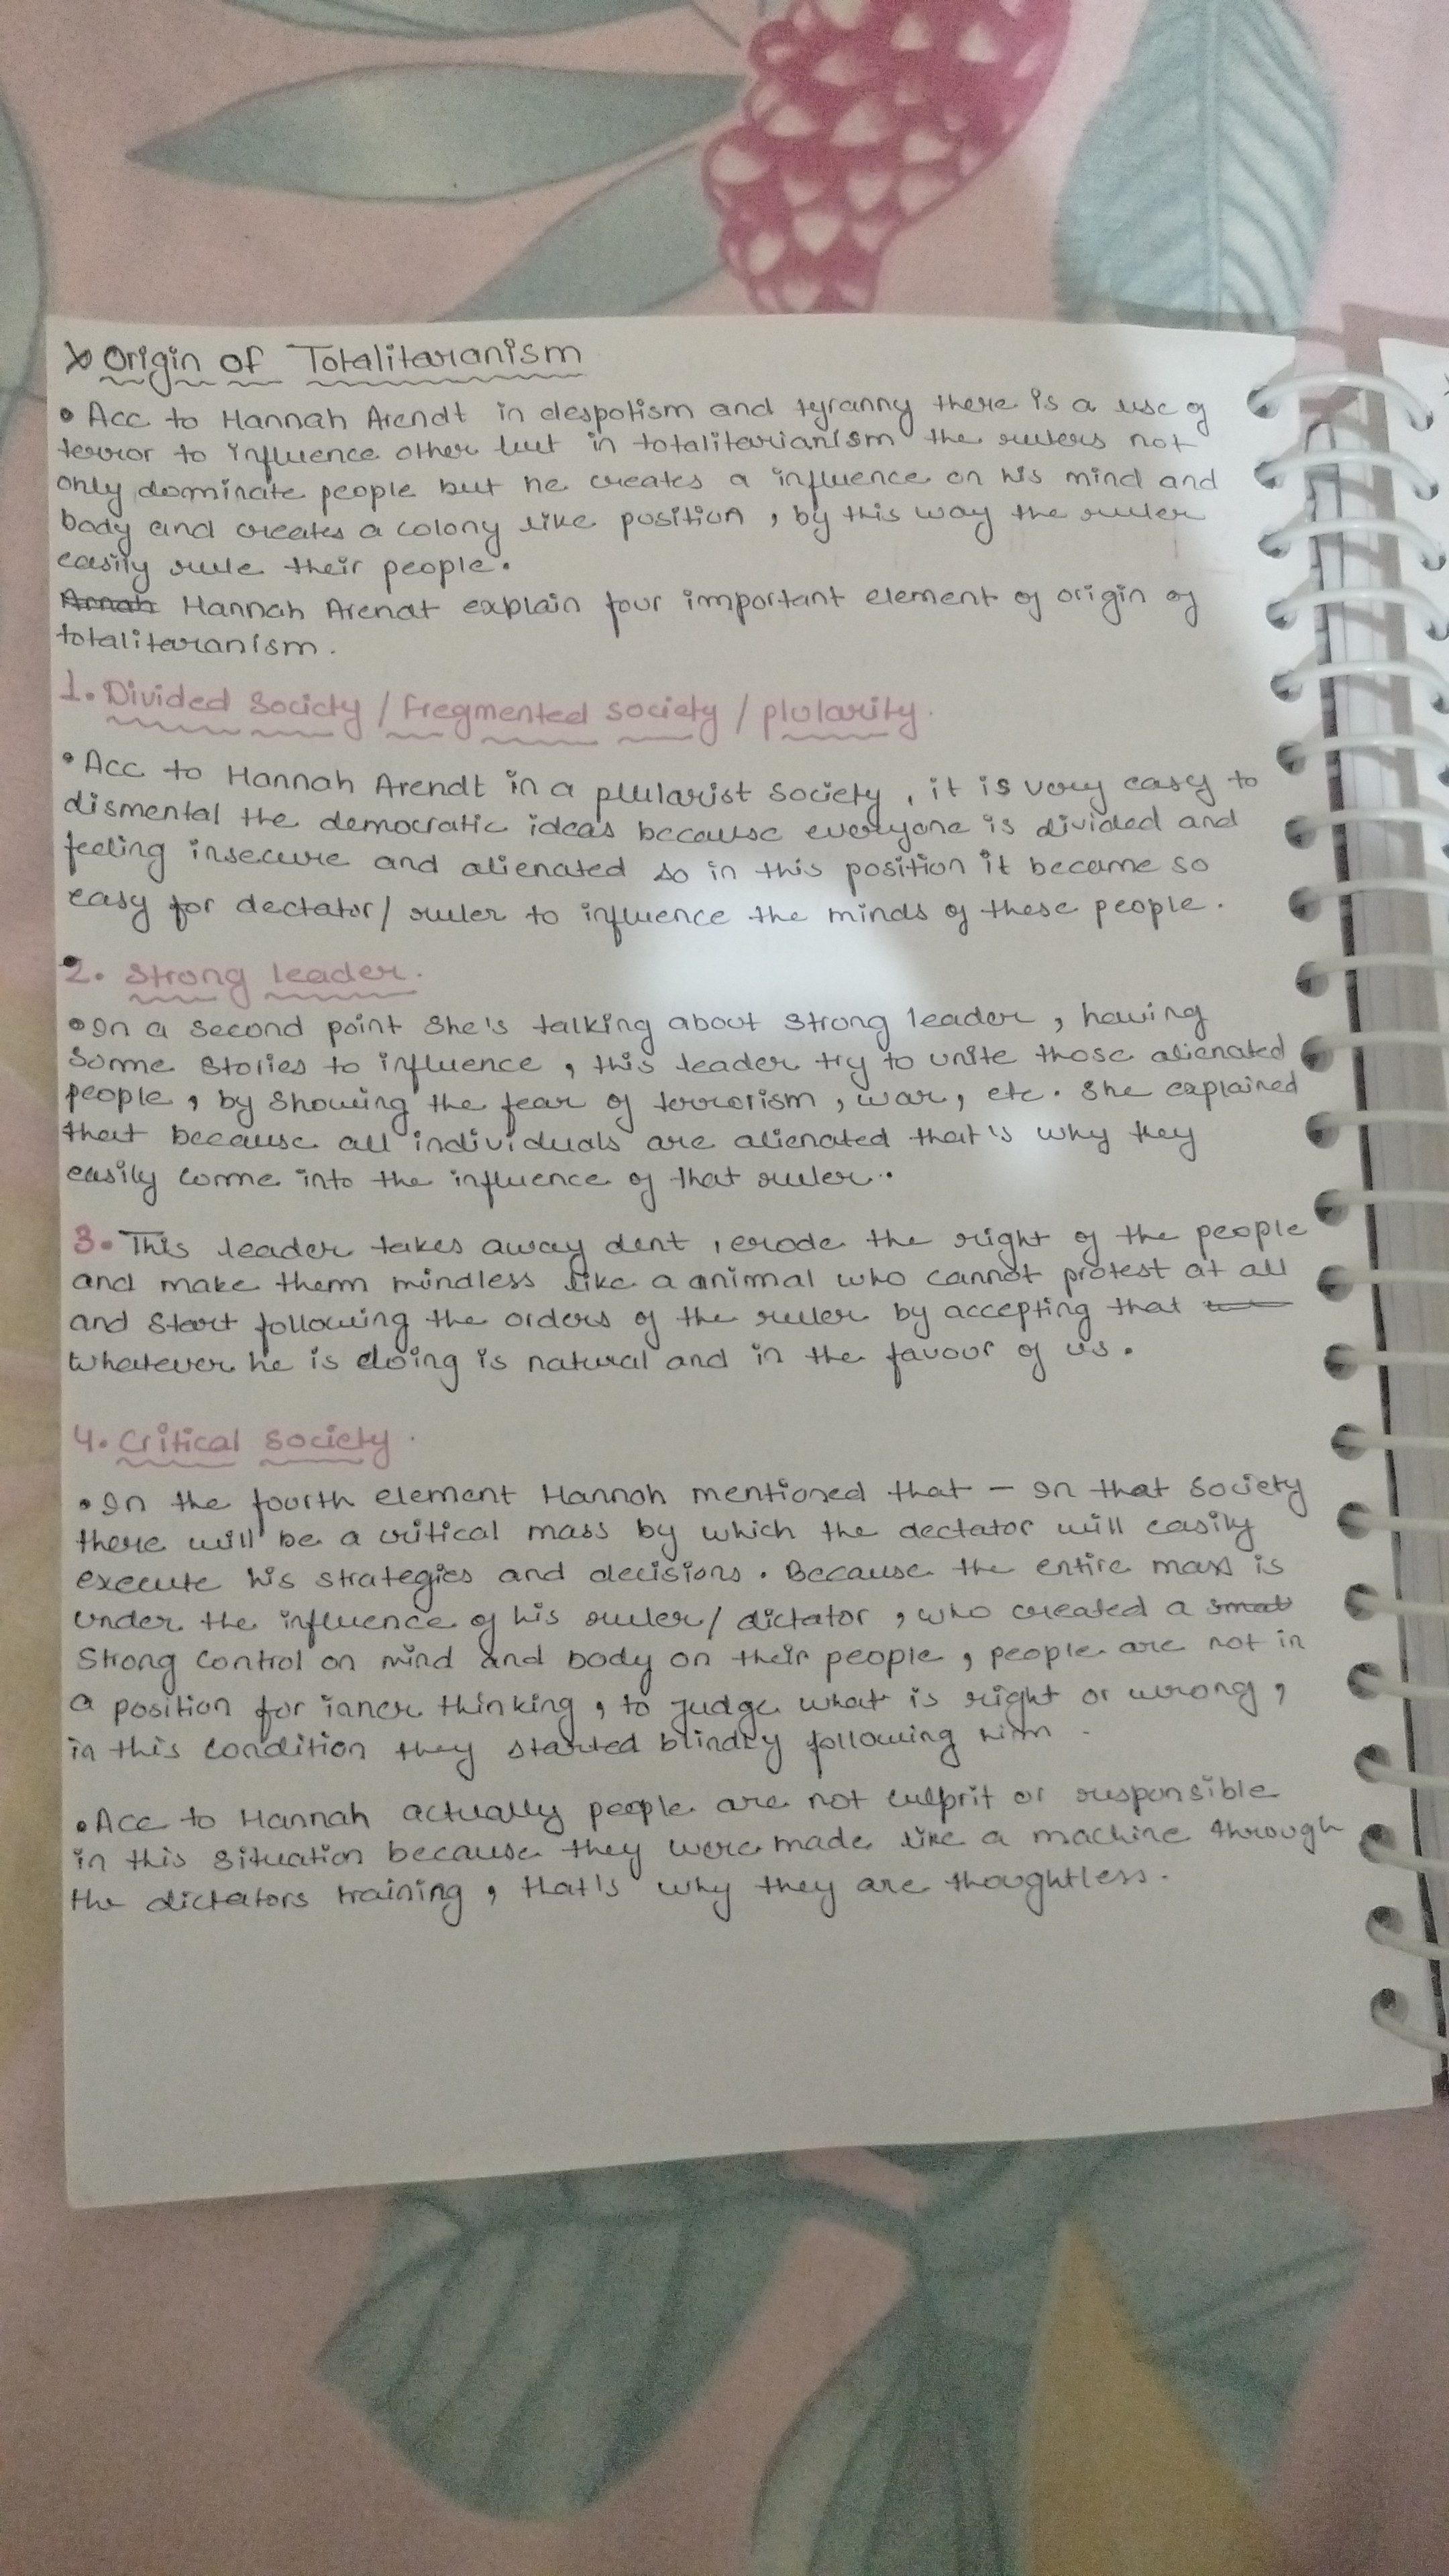 Origin of Totalitaranism
• Acc to Hannah Arendt in despotism and tyranny there is a use of
terror to influence other but in totalitarianism the rulers not
only dominate people but he creates a influence on his mind and
body and creates a colony like position, by this way the ruler
easily rule their people.
Hannah Arendt explain four important element of origin of
totalitaranism.
1. Divided Society / Fregmented society / plularity.
• Acc to Hannah Arendt in a plularist society, it is very easy to
dismental the democratic ideas because everyone is divided and
feeling insecure and alienated so in this position it became so
easy for dectator/ ruler to influence the minds of these people.
2. Strong leader.
• In a second point She's talking about strong leader, having
Some Stories to influence, this leader try to unite those alienated
people, by Showing the fear of terrorism, war, etc. She explained
that because all individuals are alienated that's why they
easily come into the influence of that ruler..
3. This leader takes away dent, erode the right of the people
and make them mindless like a animal who cannot protest at all
and Start following the orders of the ruler by accepting that
Whatever he is doing is natural and in the favour of us.
4. Critical Society.
• In the fourth element Hannah mentioned that - In that Society
there will be a critical mass by which the dectator will easily
execute his strategies and decisions. Because the entire mass is
under the influence of his ruler/ dictator, who created a
Strong Control on mind and body on their people, people are not in
a position for inner thinking, to judge what is right or wrong,
in this condition they started blindly following him.
• Acc to Hannah actually people are not culprit or responsible
in this Situation because they were made like a machine through
the dictators training, that's why they are thoughtless.